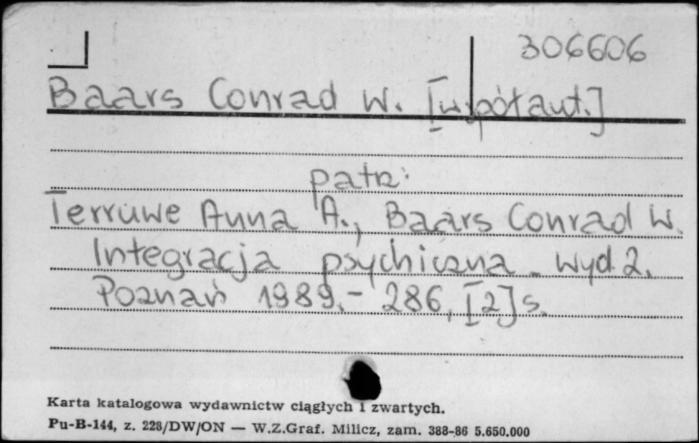 306606
Baars Conrad W. [współaut.]
patrz:
Terruwe Anna A., Baars Conrad W.
Integracja psychiczna. Wyd. 2.
Poznań 1989. - 286, [2] s.
Karta katalogowa wydawnictw ciągłych i zwartych.
Pu-B-144, z. 228/DW/ON — W.Z.Graf. Milicz, zam. 388-86 5.650.000